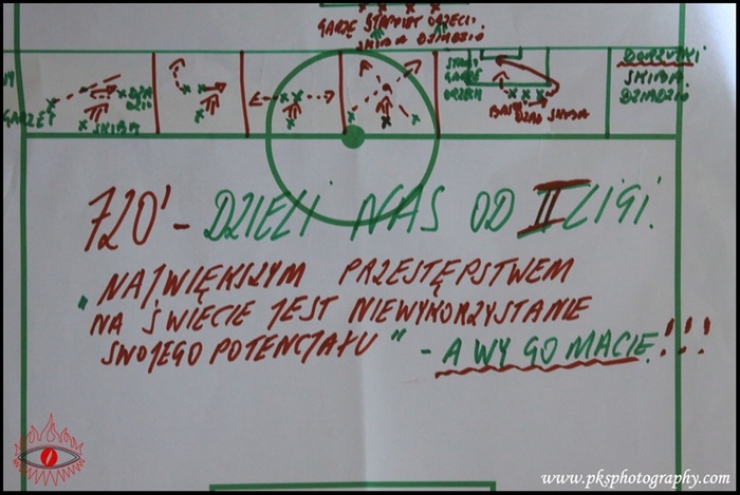 GARZĘ STAPIET ORZECI.
SKIBA DZIADZIO
GARZĘŁ
SKIBA
DZIADZIO
SKIBA
DZIADZIO
720' - DZIELI NAS OD II LIGI.
"NAJWIĘKSZYM PRZESTĘPSTWEM
NA ŚWIECIE JEST NIEWYKORZYSTANIE
SWOJEGO POTENCJAŁU" - A WY GO MACIE!!!
www.pksphotography.com